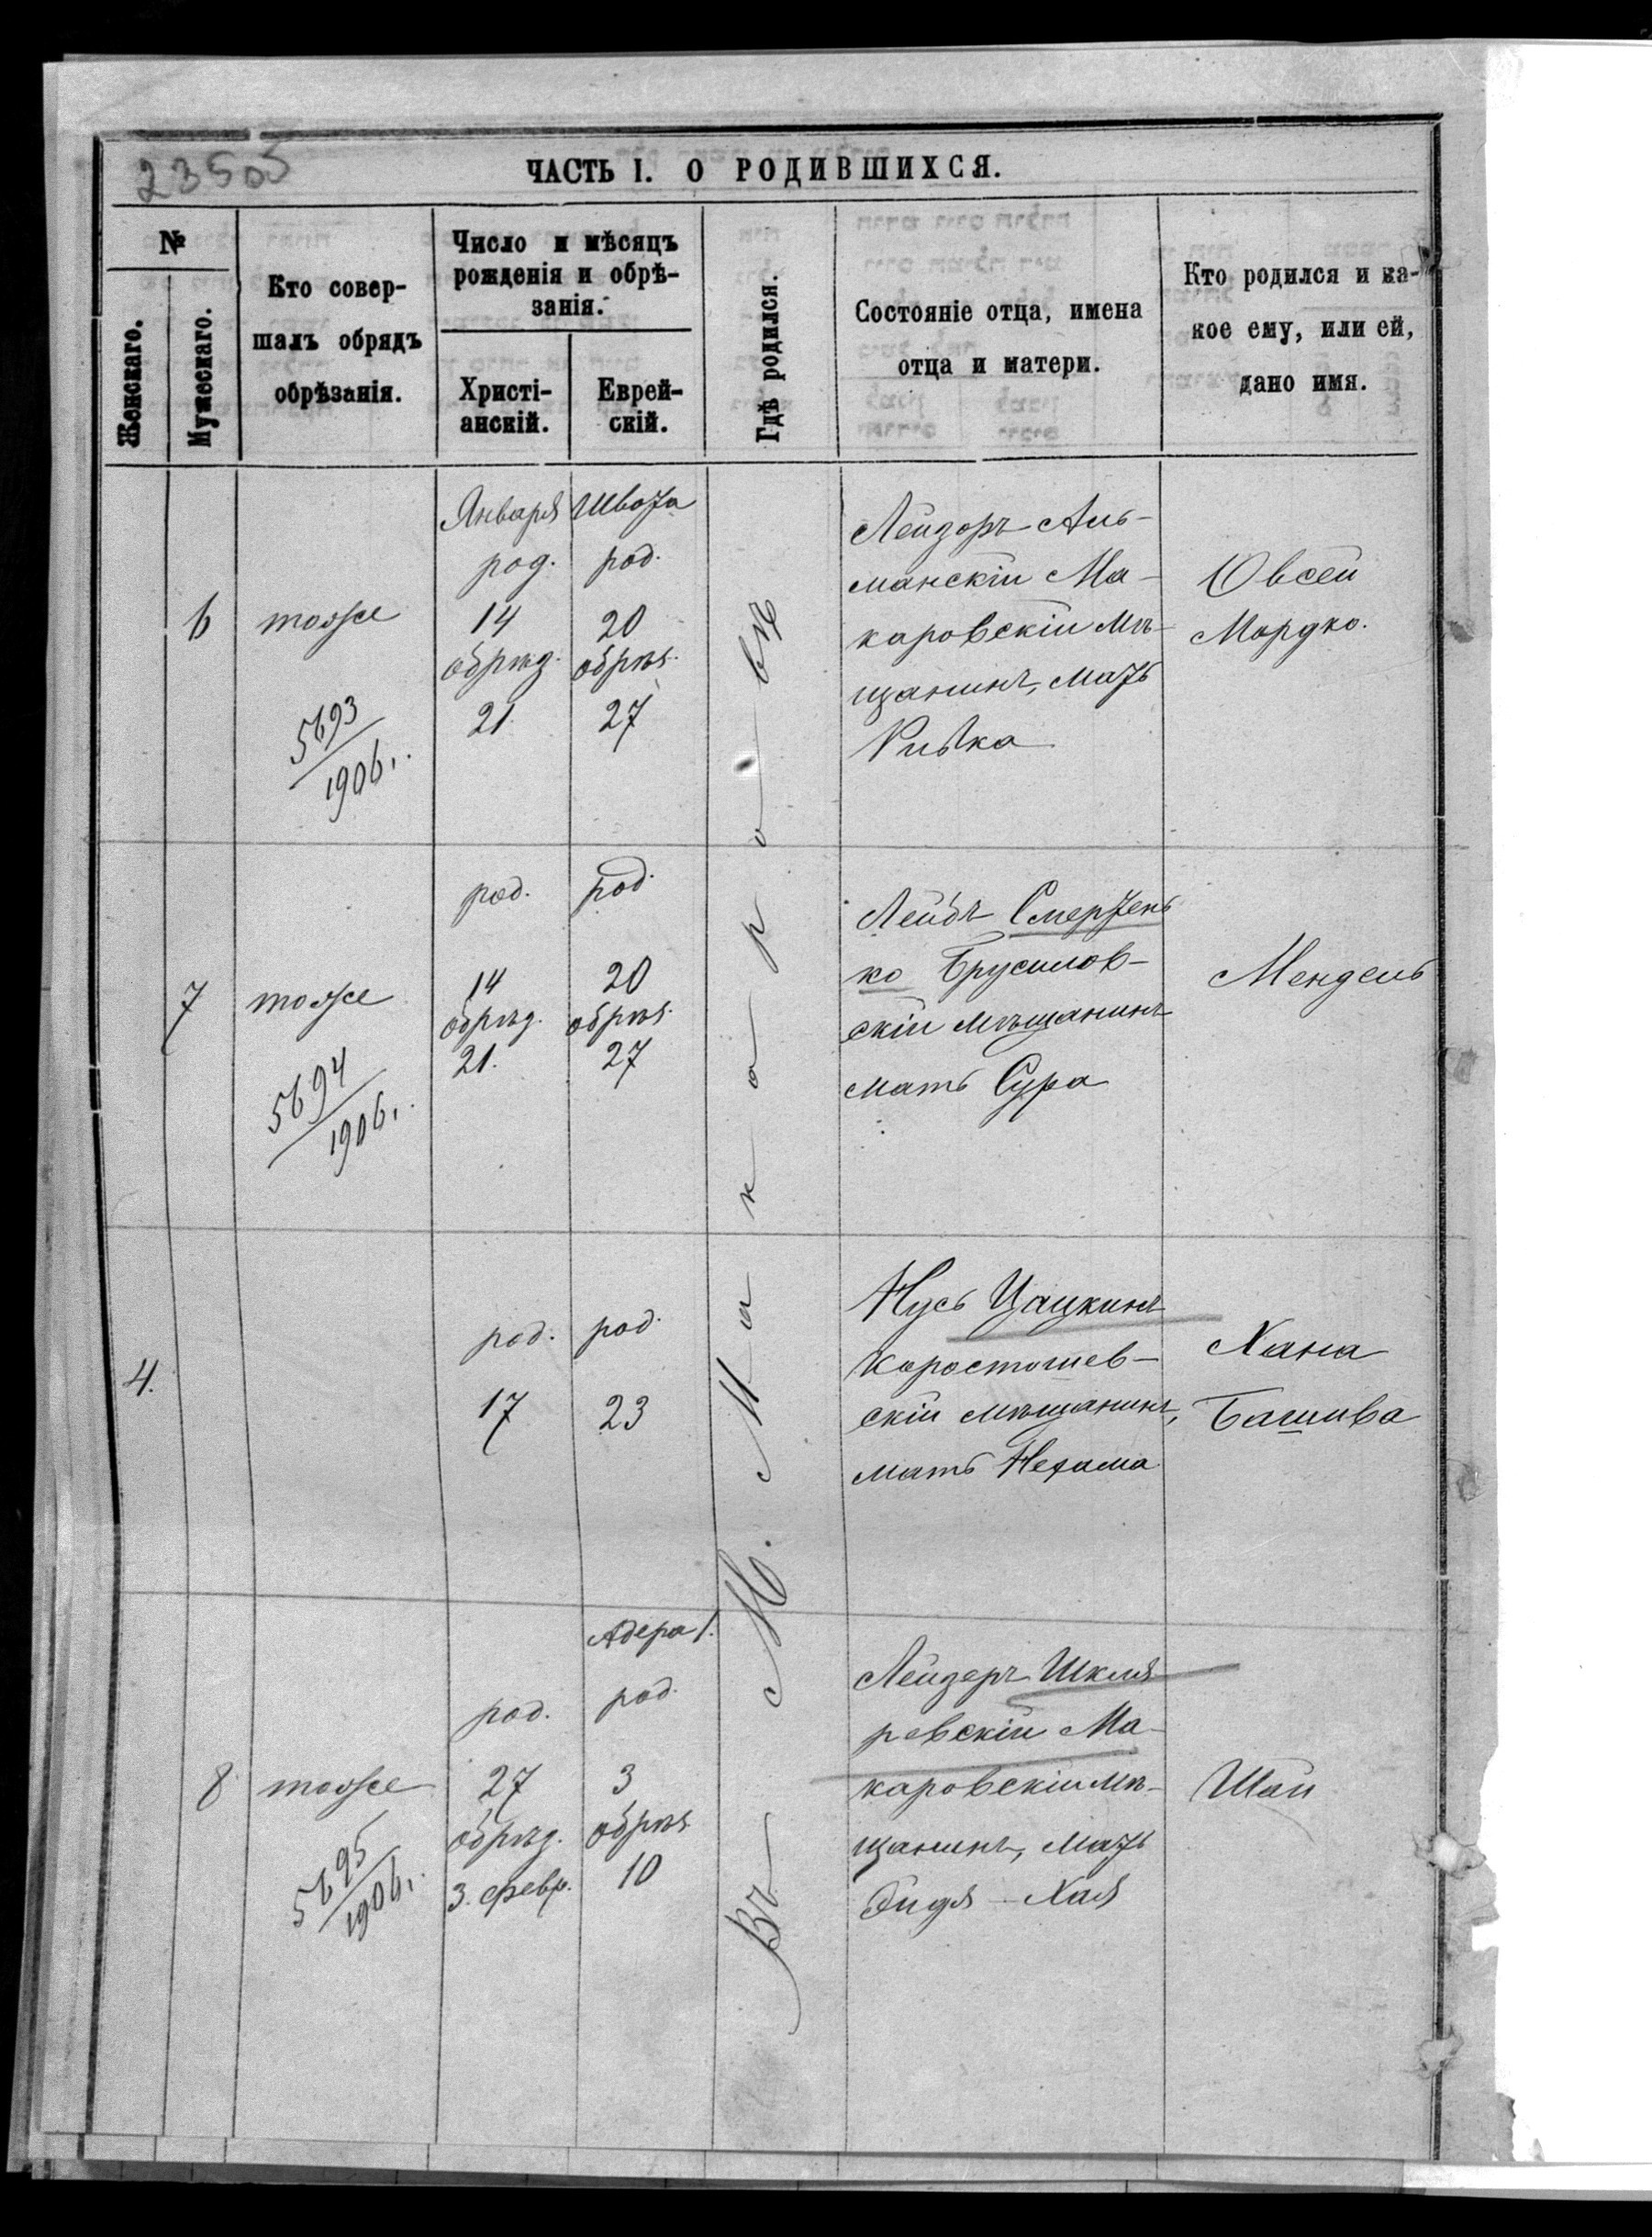 23505
ЧАСТЬ I. О РОДИВШИХСЯ.
№
Женскаго.
Мужескаго.
Кто совер-
шалъ обрядъ
обрѣзанія.
Число и мѣсяцъ
рожденія и обрѣ-
занія.
Христі-
анскій.
Еврей-
скій.
Гдѣ родился.
Состояніе отца, имена
отца и матери.
Кто родился и ка-
кое ему, или ей,
дано имя.
Въ М. Макаровѣ
6
тоже
5693
1906.
Января
род.
14
обрѣз.
21
Швота
род.
20
обрѣз.
27
Лейзоръ Аль-
манскій Ма-
каровскій мѣ-
щанинъ, мать
Ривка
Овсей
Мордко.
7
тоже
5694
1906.
род.
14
обрѣз.
21.
род.
20
обрѣз.
27
Лейбъ Смертень
ко Брусилов-
скій мѣщанинъ
мать Сура
Мендель
4.
род.
17
род.
23
Нусь Цацкинъ
Коростышев-
скій мѣщанинъ,
мать Нехама
Хана
Башива
8
тоже
5695
1906.
род.
27
обрѣз.
3. февр.
Адера 1.
род.
3
обрѣз.
10
Лейзеръ Шкля-
ревскій Ма-
каровскій мѣ-
щанинъ, мать
Эйдя-Хая
Шай